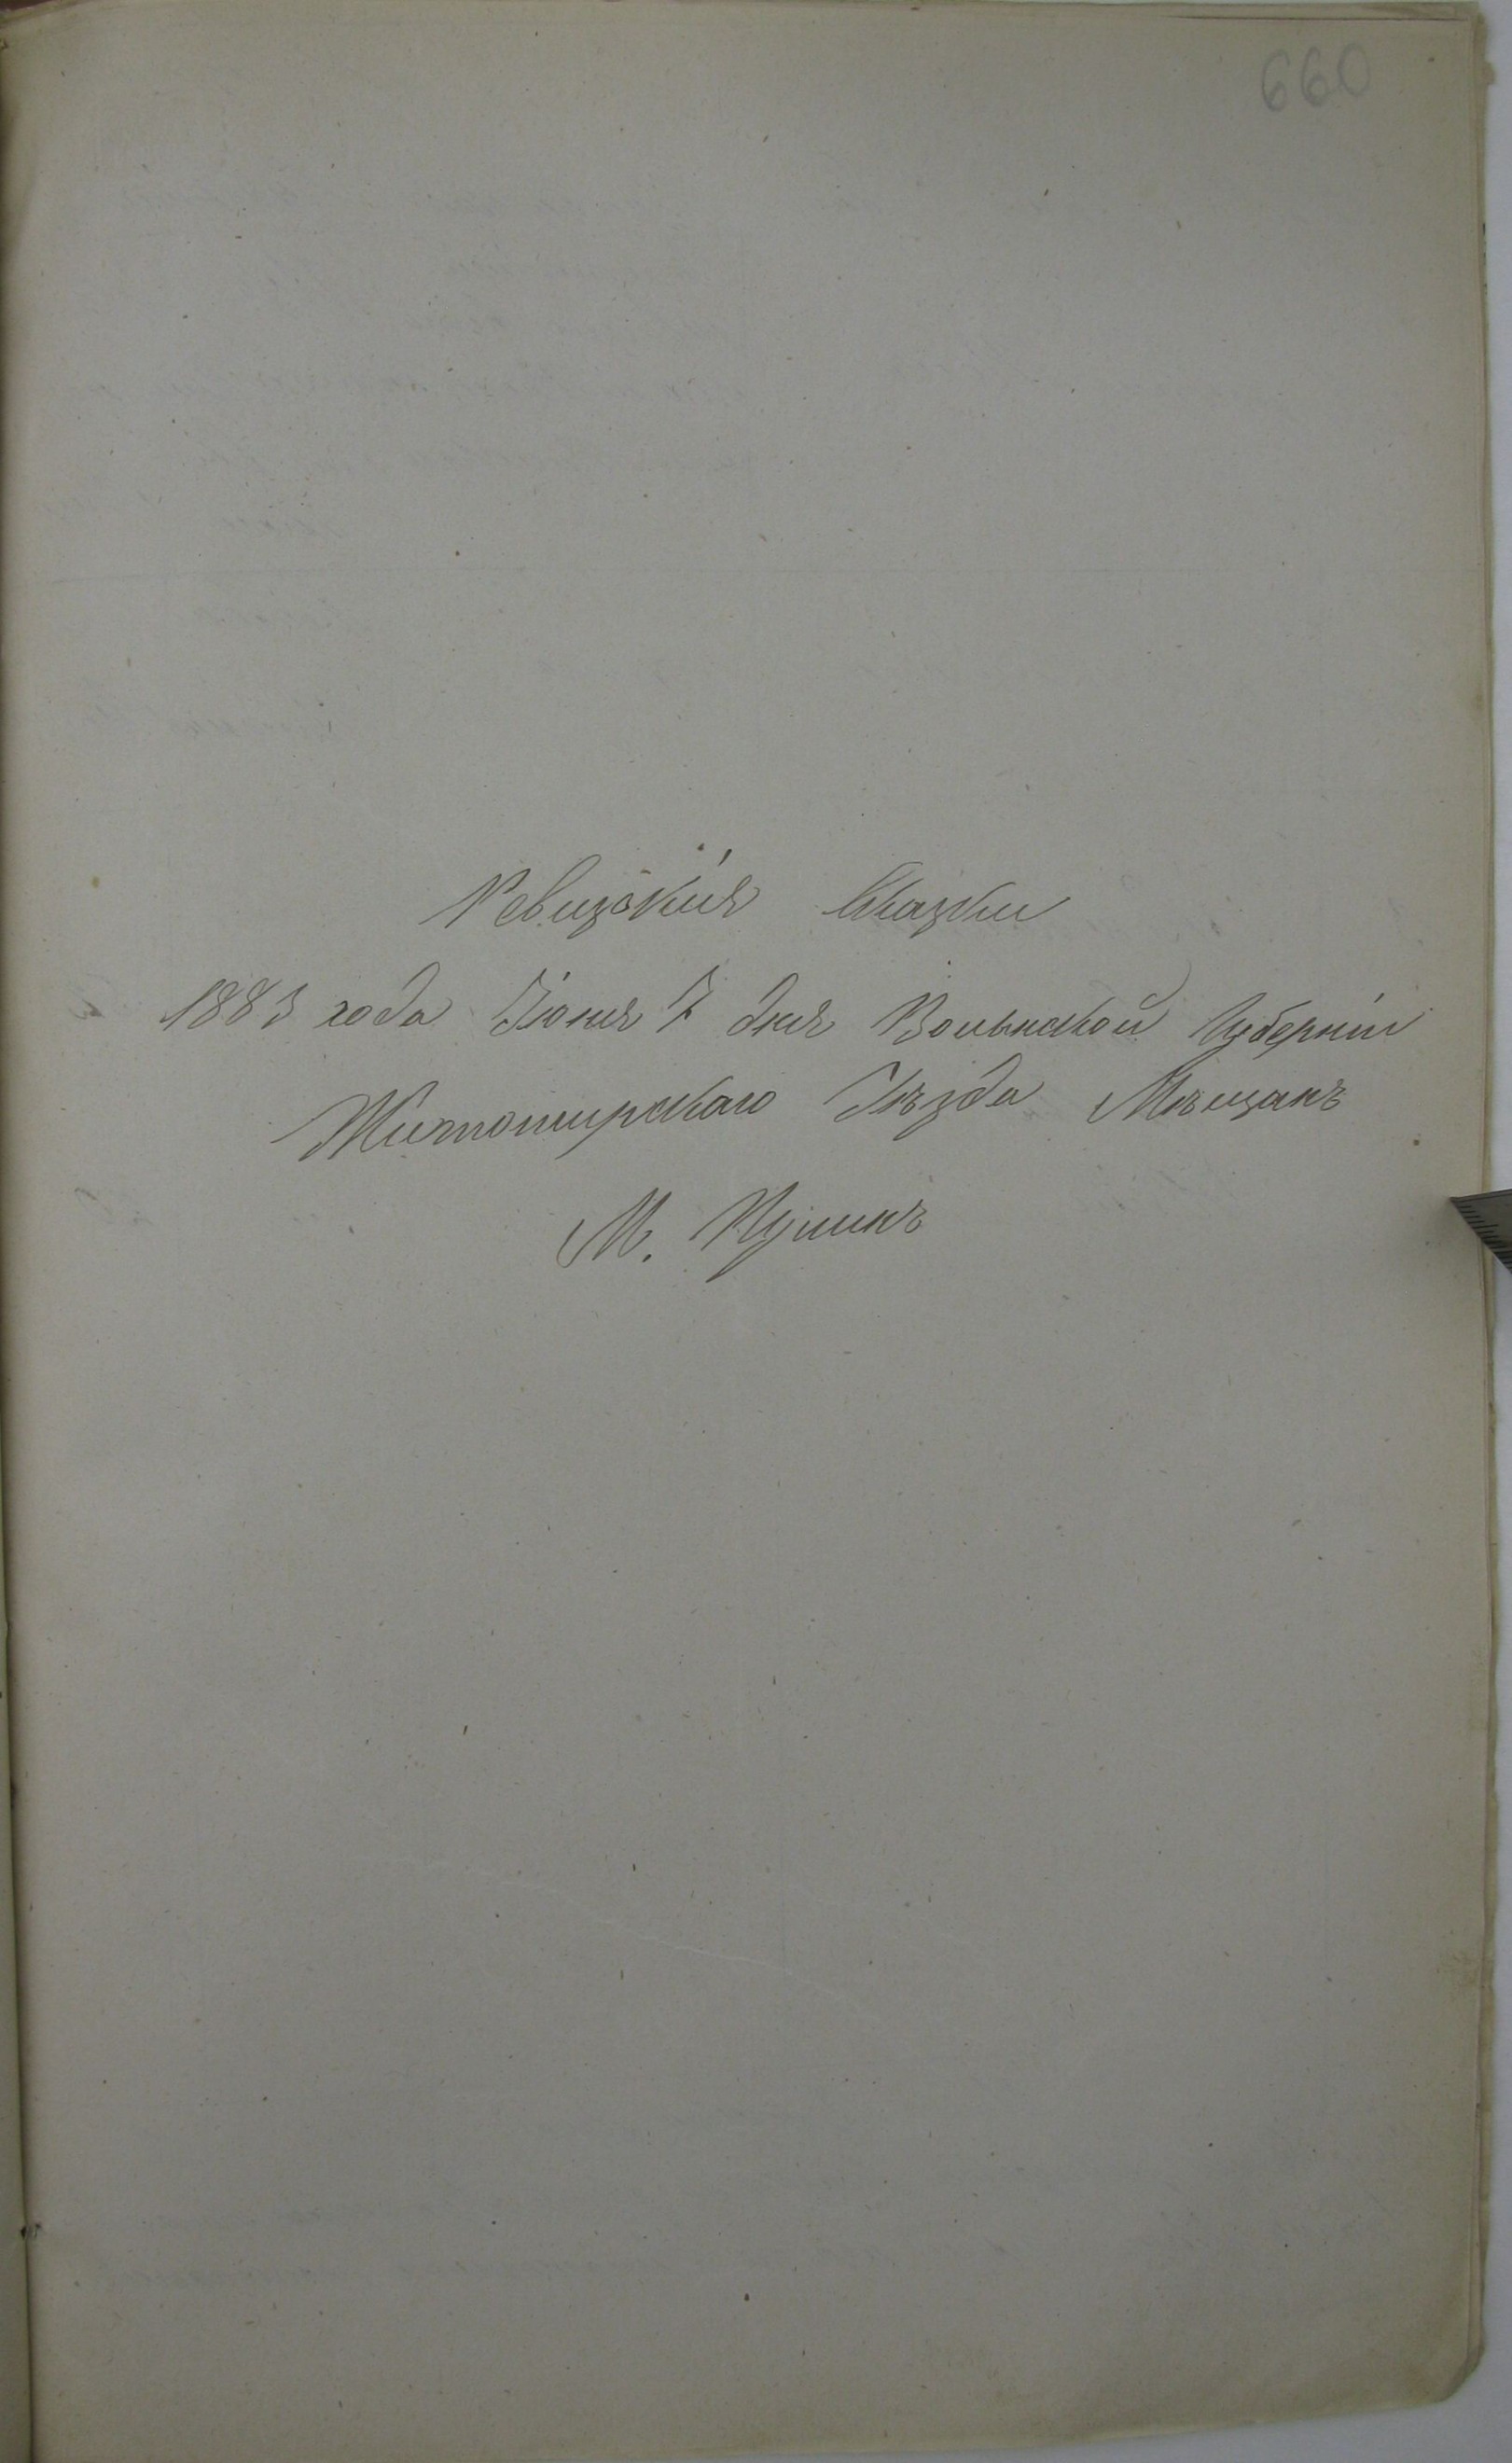 660
Ревизскія Сказки
1883 года Іюня 7 дня Волынской Губерніи
Житомирскаго Уѣзда Мѣщанъ
М. Пулинъ